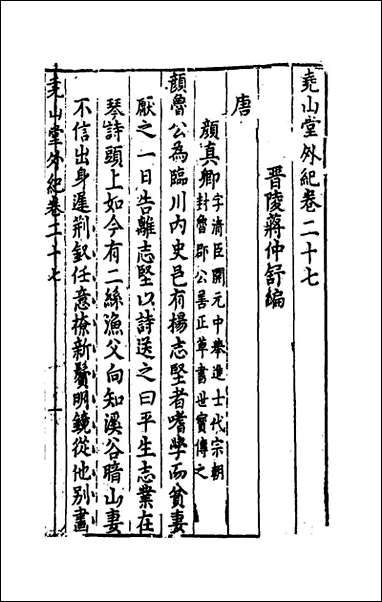 堯山堂外紀卷二十七
晉陵蔣仲舒編
唐
顏真卿字清臣開元中舉進士代宗朝
封魯郡公善正草書世寳傳之
顏魯公為臨川內史邑有楊志堅者嗜學而貧妻
厭之一日告離志堅以詩送之曰平生志業在
琴詩頭上如今有二絲漁父向知溪谷暗山妻
不信出身遲荆釵任意撩新鬢明鏡從他別畫
堯山堂外紀卷二十七